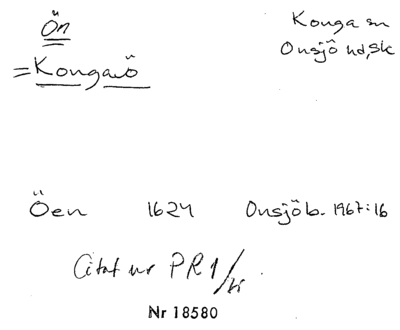 Ön
Konga sn
Onsjö hd, Sk
= Konga ö
Öen 1624 Onsjöb. 1967:16
Citat ur PR1/
Nr 18580